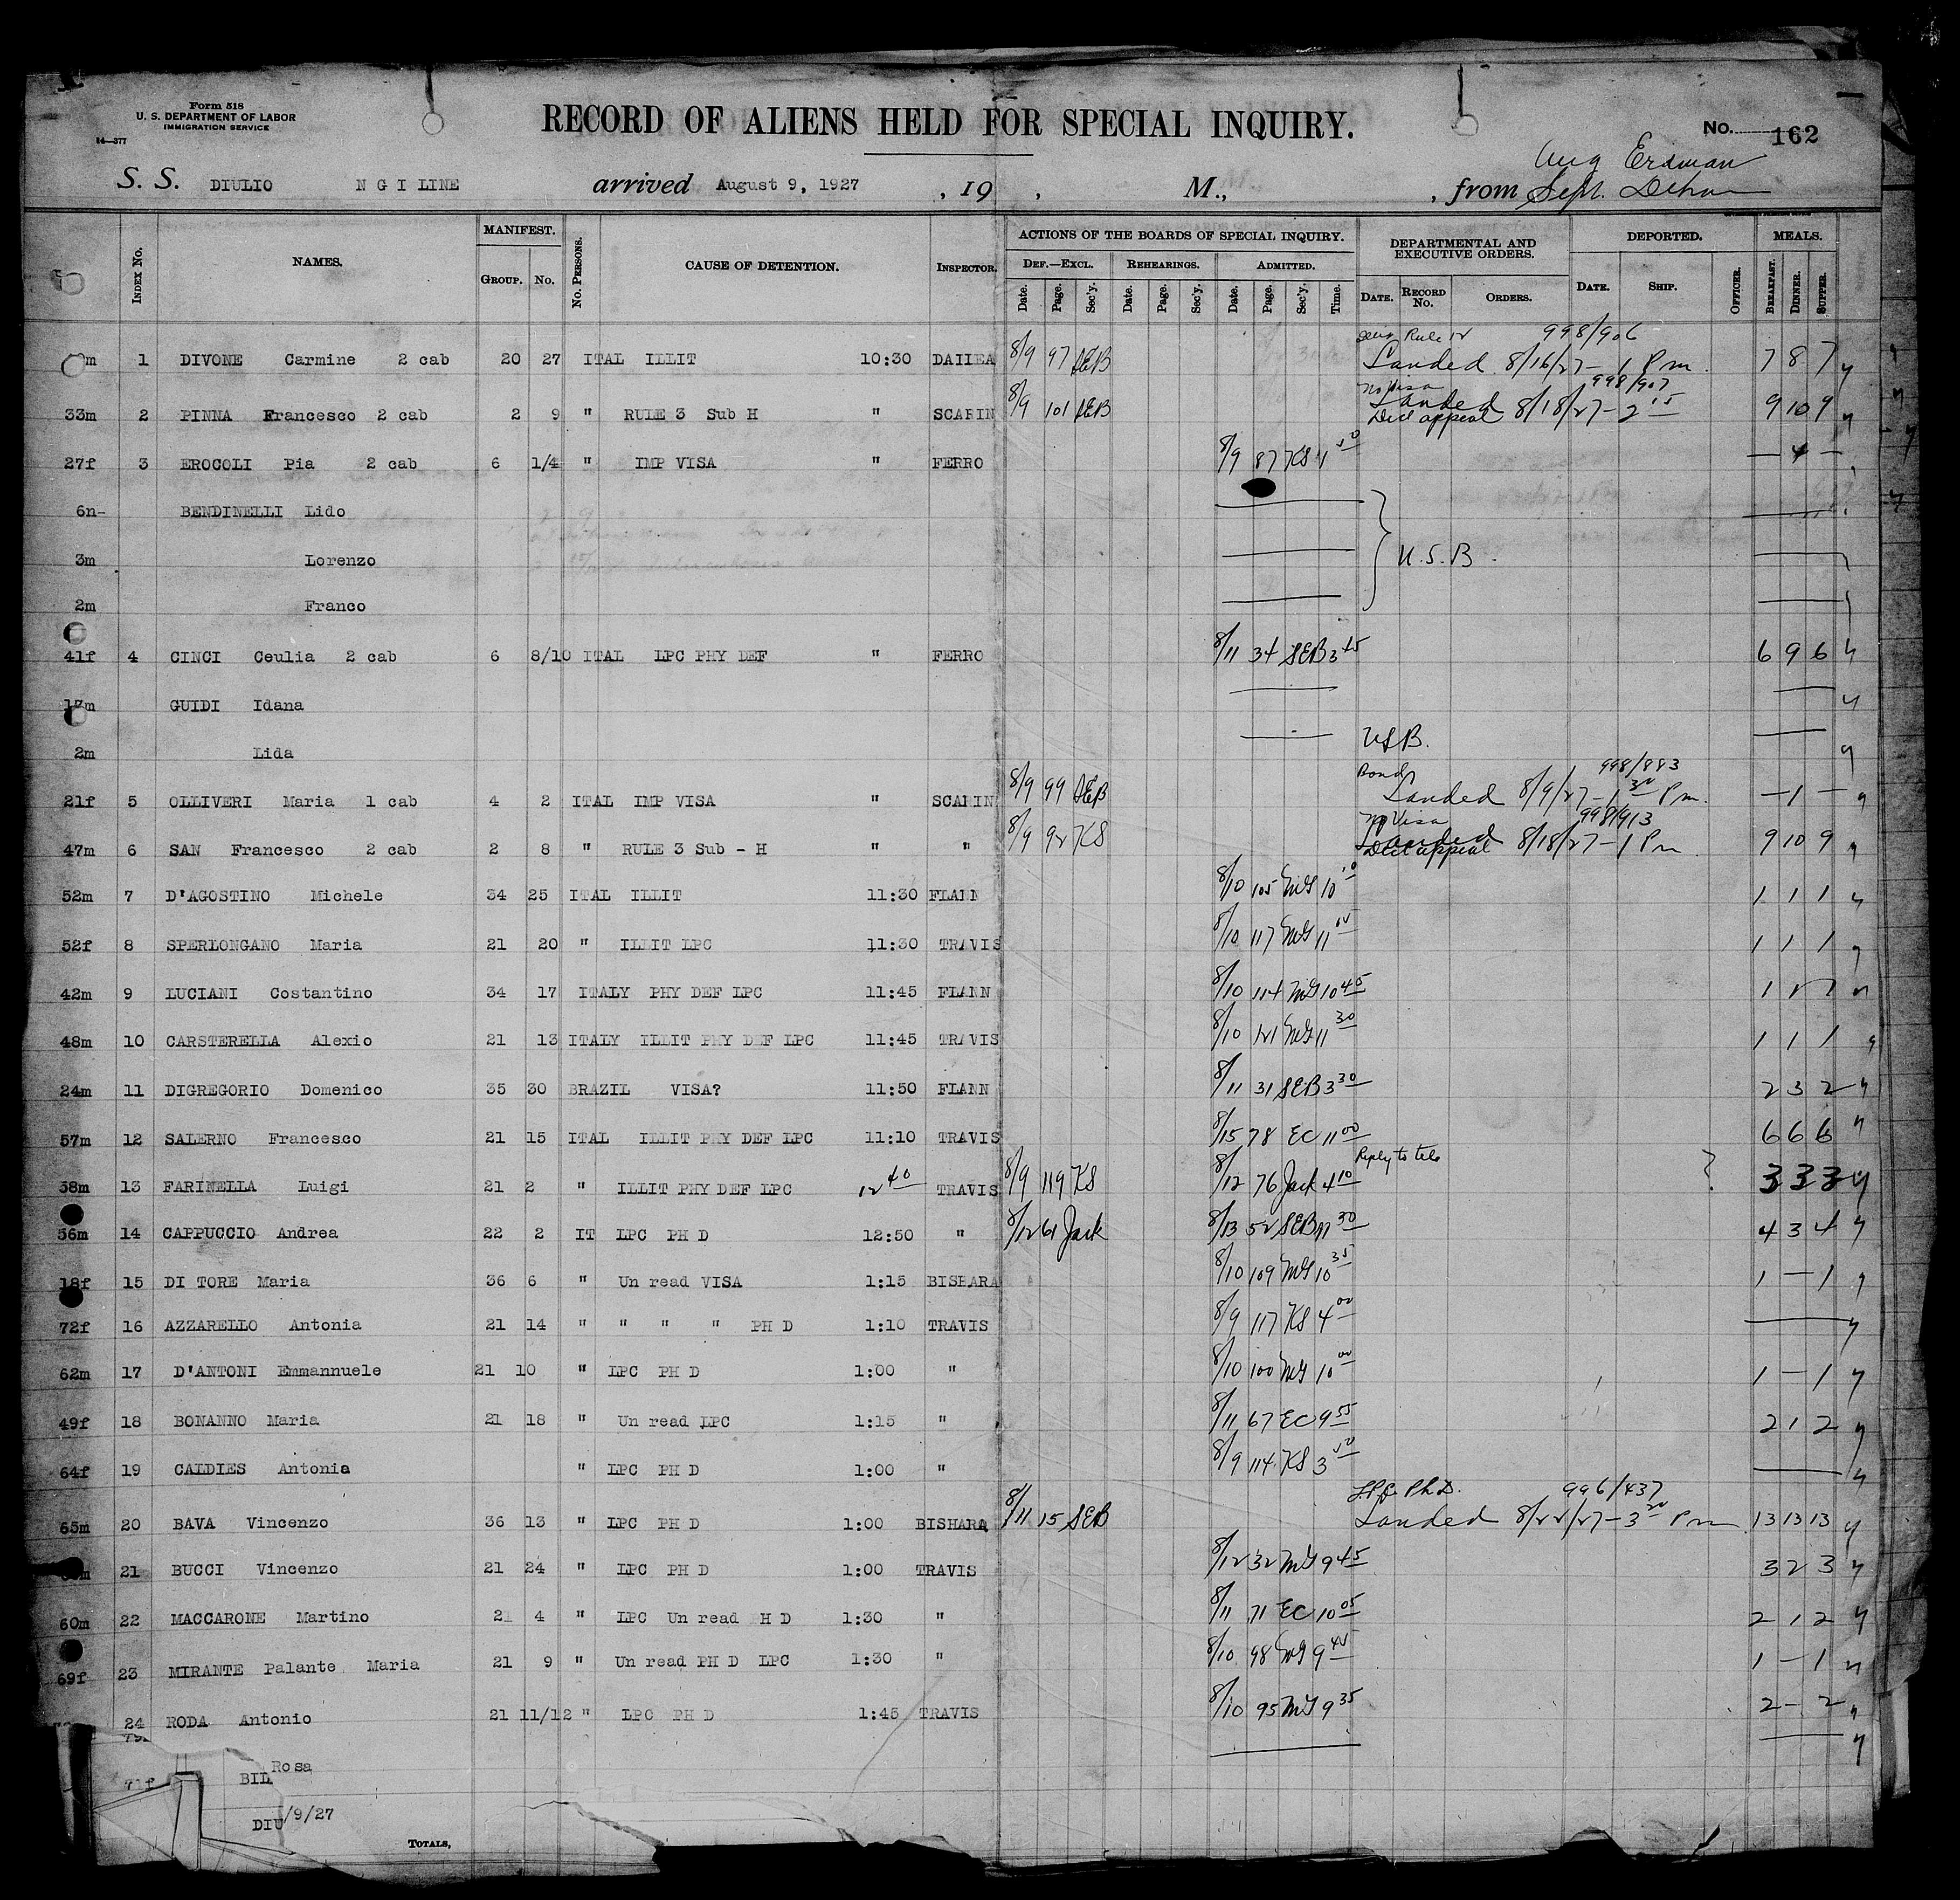 Form 518
U. S. DEPARTMENT OF LABOR
IMMIGRATION SERVICE
14—377
RECORD OF ALIENS HELD FOR SPECIAL INQUIRY.
No. 162
Aug Erdman
S. S. DIULIO N G I LINE arrived August 9, 1927 , 19 , M., , from Sept.
INDEX No. NAMES. MANIFEST. GROUP. No. No. PERSONS. CAUSE OF DETENTION. INSPECTOR. ACTIONS OF THE BOARDS OF SPECIAL INQUIRY. DEF.—EXCL. Date. Page. Sec'y. REHEARINGS. Date. Page. Sec'y. ADMITTED. Date. Page. Sec'y. Time. DEPARTMENTAL AND EXECUTIVE ORDERS. DATE. RECORD No. ORDERS. DEPORTED. DATE. SHIP. OFFICER. MEALS. BREAKFAST. DINNER. SUPPER.
Rule 12 998/906
m 1 DIVONE Carmine 2 cab 20 27 ITAL ILLIT 10:30 8/9 97 SEB Landed 8/16/27 - 1 Pm 7 8 7
No Visa 998/907
33m 2 PINNA Francesco 2 cab 2 9 " RULE 3 Sub H " SCARIN 8/9 101 SEB Landed 8/18/27 - 2 15 9 10 9
Dict appeal
27f 3 EROCOLI Pia 2 cab 6 1/4 " IMP VISA " FERRO 8/9 87 KS — 4 —
6n- BENDINELLI Lido
3m Lorenzo U.S.B.
2m Franco
41f 4 CINCI Ceulia 2 cab 6 8/10 ITAL LPC PHY DEF " FERRO 8/11 34 SEB 3 45 6 9 6
17m GUIDI Idana
2m Lida USB.
Bond 998/883
21f 5 OLLIVERI Maria 1 cab 4 2 ITAL IMP VISA " SCARIN 8/9 99 SEB Landed 8/9/27 - 1 30 Pm — 1 —
No Visa 998/913
47m 6 SAN Francesco 2 cab 2 8 " RULE 3 Sub - H " " 8/9 92 KS Landed 8/18/27 - 1 Pm 9 10 9
Dict appeal
52m 7 D'AGOSTINO Michele 34 25 ITAL ILLIT 11:30 FLANN 8/10 105 MG 10 10 1 1 1
52f 8 SPERLONGANO Maria 21 20 " ILLIT LPC 11:30 TRAVIS 8/10 117 MG 11 05 1 1 1
42m 9 LUCIANI Costantino 34 17 ITALY PHY DEF LPC 11:45 FLANN 8/10 114 MG 10 45 1 1 1
48m 10 CARSTERELLA Alexio 21 13 ITALY ILLIT PHY DEF LPC 11:45 TRAVIS 8/10 121 MG 11 30 1 1 1
24m 11 DIGREGORIO Domenico 35 30 BRAZIL VISA? 11:50 FLANN 8/11 31 SEB 3 30 2 3 2
57m 12 SALERNO Francesco 21 15 ITAL ILLIT PHY DEF LPC 11:10 TRAVIS 8/15 78 EC 11 00 6 6 6
Reply to tele
58m 13 FARINELLA Luigi 21 2 " ILLIT PHY DEF LPC 12 40 TRAVIS 8/9 119 KS 8/12 76 Jack 4 10 3 3 3
56m 14 CAPPUCCIO Andrea 22 2 IT LPC PH D 12:50 " 8/12 61 Jack 8/13 52 SEB 11 30 4 3 4
18f 15 DI TORE Maria 36 6 " Un read VISA 1:15 BISHARA 8/10 109 MG 10 35 1 — 1
72f 16 AZZARELLO Antonia 21 14 " " " " PH D 1:10 TRAVIS 8/9 117 KS 4 00
62m 17 D'ANTONI Emmannuele 21 10 " LPC PH D 1:00 " 8/10 100 MG 10 00 1 — 1
49f 18 BONANNO Maria 21 18 " Un read LPC 1:15 " 8/11 67 EC 9 55 2 1 2
64f 19 CALDIES Antonia " LPC PH D 1:00 " 8/9 114 KS 3 50
LPC Ph D. 996/437
65m 20 BAVA Vincenzo 36 13 " LPC PH D 1:00 BISHARA 8/11 15 SEB Landed 8/22/27 - 3 30 Pm 13 13 13
21 BUCCI Vincenzo 21 24 " LPC PH D 1:00 TRAVIS 8/12 32 MG 9 45 3 2 3
60m 22 MACCARONE Martino 21 4 " LPC Un read H D 1:30 " 8/11 71 EC 10 05 2 1 2
69f 23 MIRANTE Palante Maria 21 9 " Un read PH D LPC 1:30 " 8/10 98 MG 9 45 1 — 1
24 RODA Antonio 21 11/12 " LPC PH D 1:45 TRAVIS 8/10 95 MG 9 35 2 — 2
71f BIL Rosa
DIU /9/27
TOTALS,